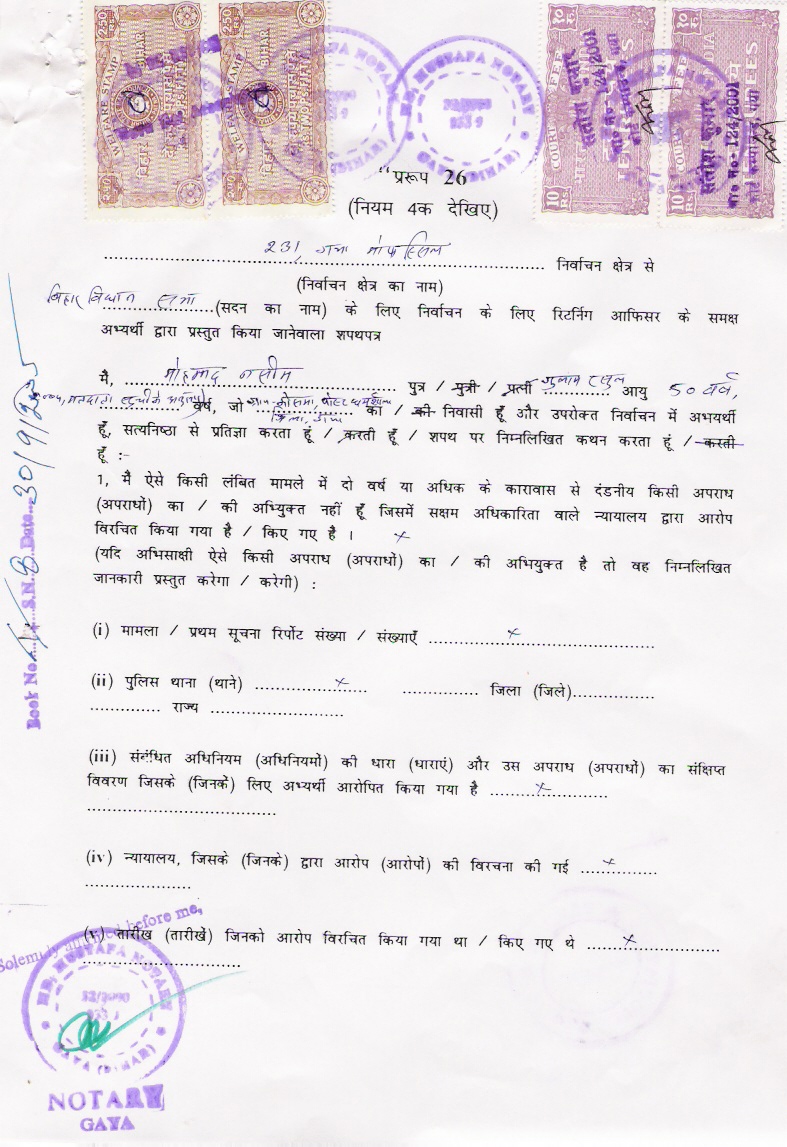 250 WELFARE STAMP BIHAR 250
WELFARE STAMP BIHAR 250
MD. MUSTAFA NOTARY
GAYA (BIHAR)
१० रु. COURT FEE भारत INDIA FEES 10 Rs.
सतीश कुमार
ला० न०- 124/2001
“प्ररूप 26
(नियम 4क देखिए)
231, गया मोफस्सिल निर्वाचन क्षेत्र से
(निर्वाचन क्षेत्र का नाम)
बिहार विधान सभा (सदन का नाम) के लिए निर्वाचन के लिए रिटर्निग आफिसर के समक्ष
अभ्यर्थी द्वारा प्रस्तुत किया जानेवाला शपथपत्र
मै, मोहम्मद नसीम पुत्र / पुत्री / पत्नी गुलाम रसुल आयु 50 वर्ष,
वर्ष, जो का / की निवासी हूँ और उपरोक्त निर्वाचन में अभयर्थी
जिला, गया
हूँ, सत्यनिष्ठा से प्रतिज्ञा करता हूं / करती हूँ / शपथ पर निम्नलिखित कथन करता हूं / करती
हूँ :-
1, मै ऐसे किसी लंबित मामले में दो वर्ष या अधिक के कारावास से दंडनीय किसी अपराध
(अपराधों) का / की अभ्यिुक्त नहीं हूँ जिसमें सक्षम अधिकारिता वाले न्यायालय द्वारा आरोप
विरचित किया गया है / किए गए है । ×
(यदि अभिसाक्षी ऐसे किसी अपराध (अपराधों) का / की अभियुक्त है तो वह निम्नलिखित
जानकारी प्रस्तुत करेगा / करेगी) :
(i) मामला / प्रथम सूचना रिर्पोट संख्या / संख्याएँ ×
(ii) पुलिस थाना (थाने) × जिला (जिले)
राज्य
(iii) संबंधित अधिनियम (अधिनियमों) की धारा (धाराएं) और उस अपराध (अपराधों) का संक्षिप्त
विवरण जिसके (जिनके) लिए अभ्यर्थी आरोपित किया गया है ×
(iv) न्यायालय, जिसके (जिनके) द्वारा आरोप (आरोपों) की विरचना की गई ×
(v) तारीख (तारीखें) जिनको आरोप विरचित किया गया था / किए गए थे ×
Book No. S.N. 8 Date 30/9/2005
Solemnly affirmed before me,
MD. MUSTAFA NOTARY
GAYA (BIHAR)
NOTARY
GAYA